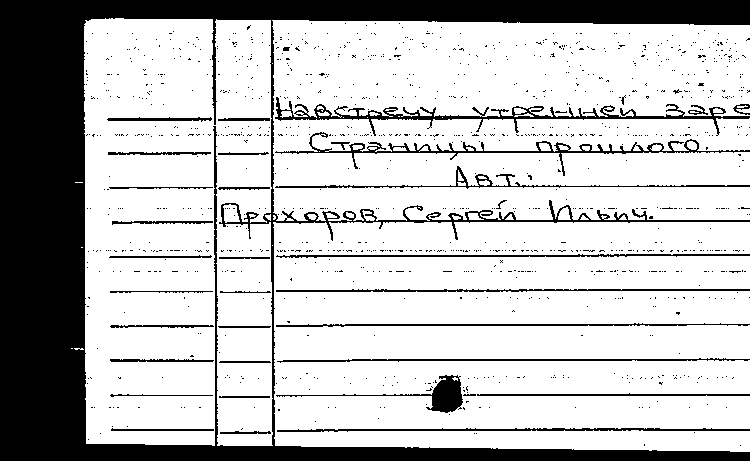 Навстречу утренней заре
Страницы прошлого.
Авт.:
Прохоров, Сергей Ильич.